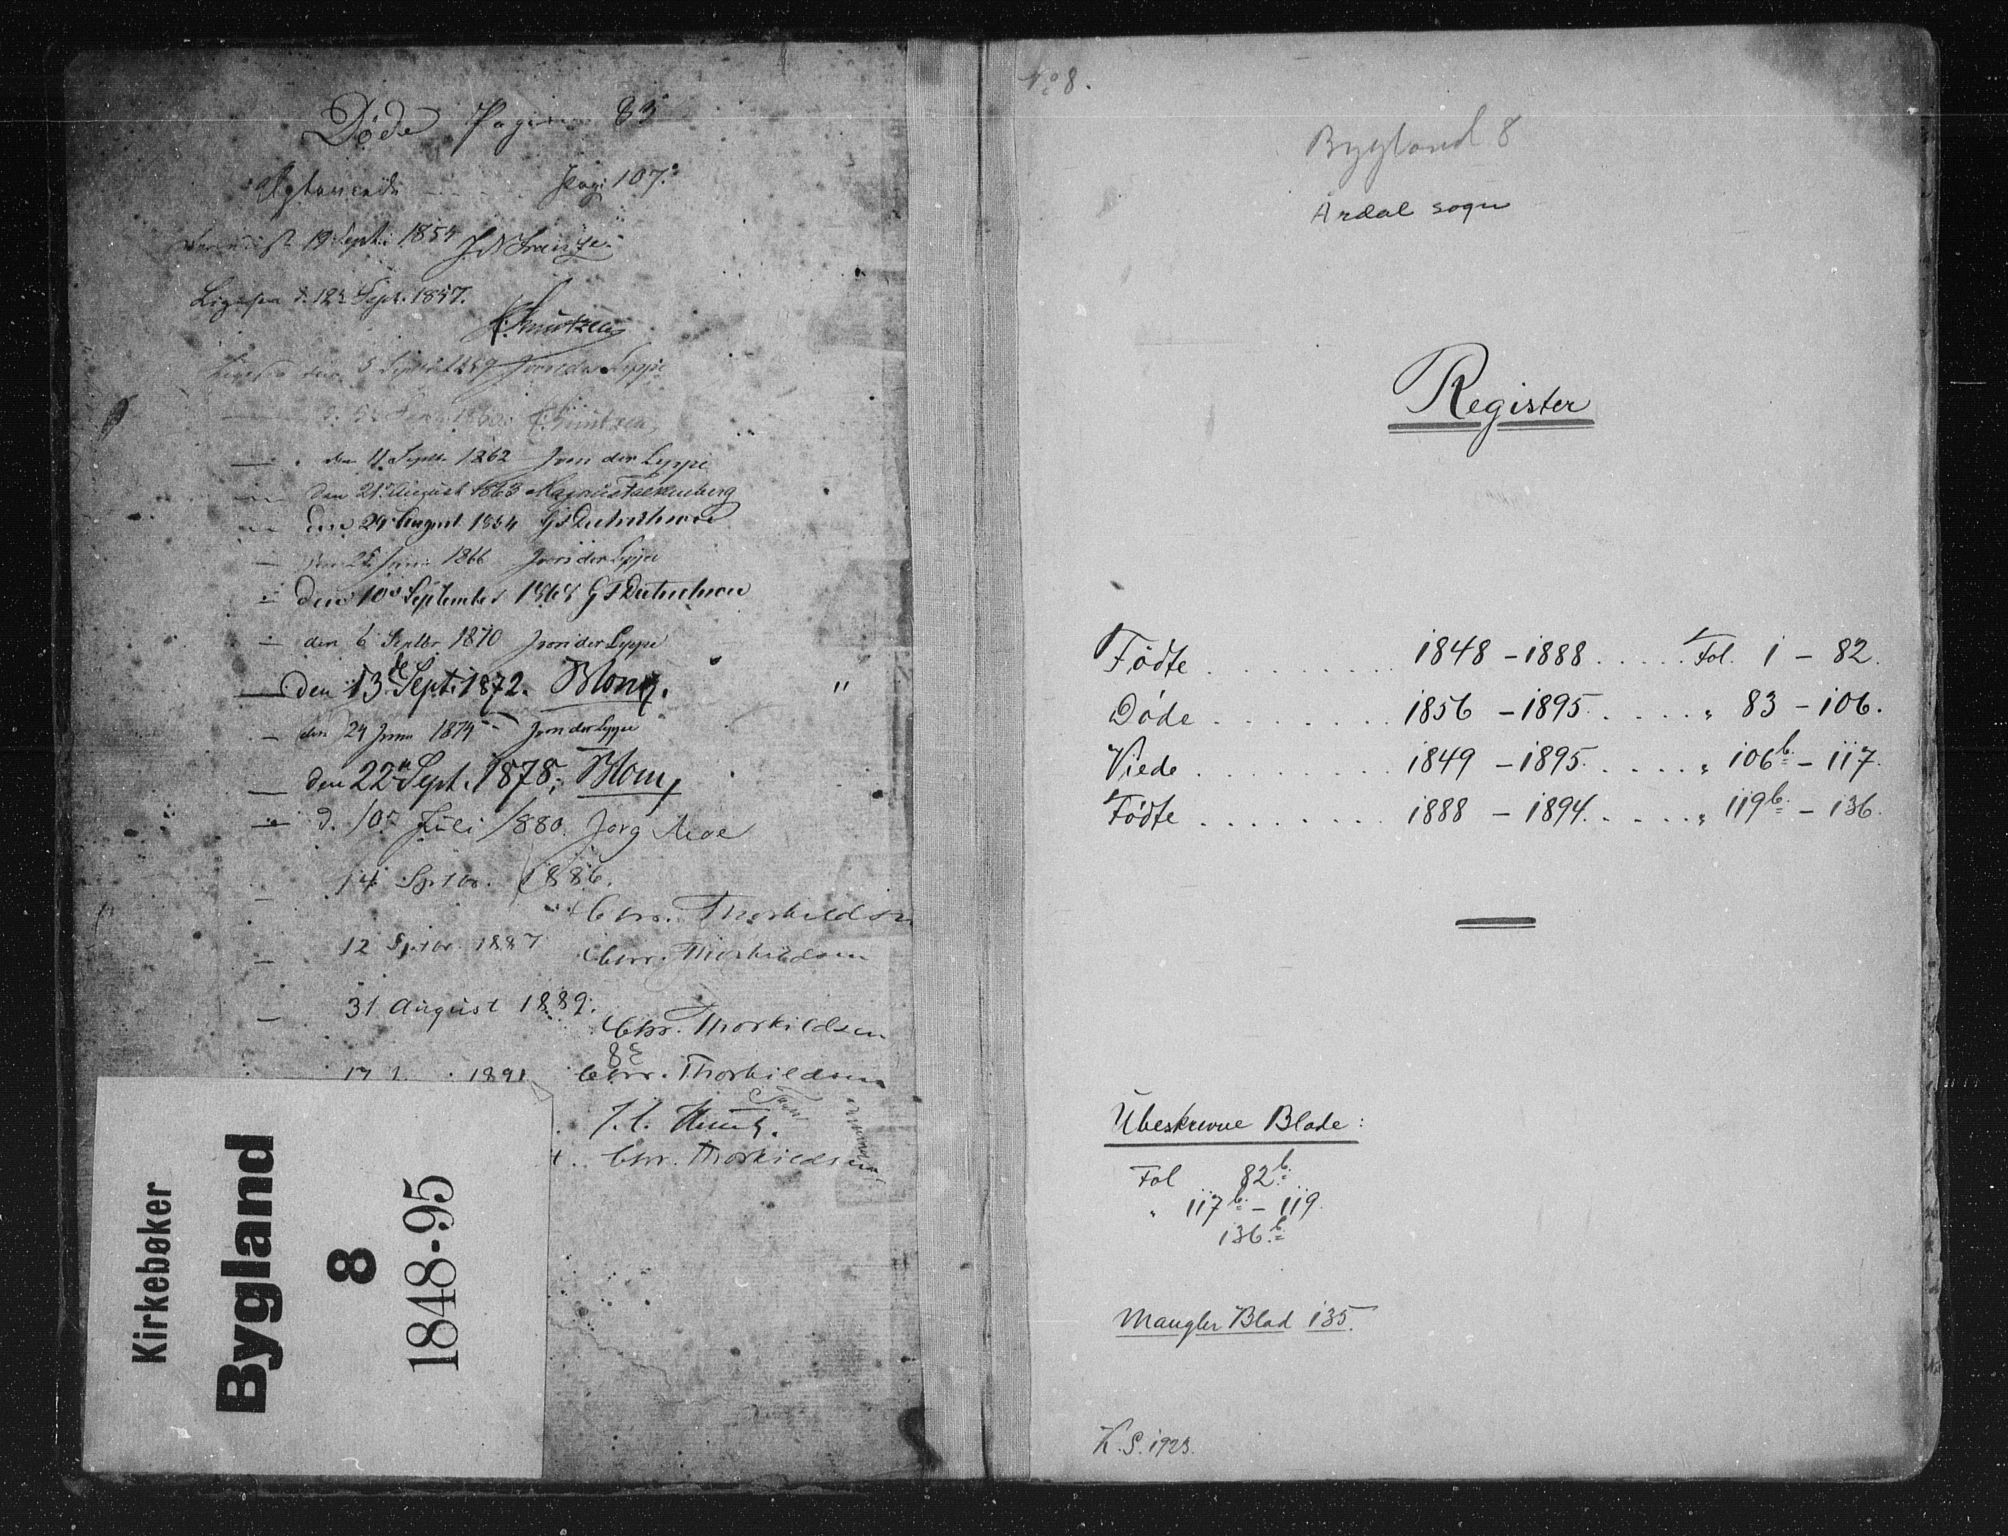 Døde Pagina 83
Pagi 107.
19 Septr 1854
d. 12 Septr. 1857.
Knutzen
5 1859 von der Lippe
1860. Knutzen
den 4 Septbr 1862 von der Lippe
den 21 August 1863 Magnus Falkenberg
den 24 August 1864
den 25 Juni 1866 J von der Lippe
den 10 September 1868
den 6 Septbr. 1870 J von der Lippe
den 13de Sept. 1872. Blom.
den 24 Juni 1874 J von der Lippe
den 22n Sept. 1878, Blom,
d. 10. Juli 1880. Jørg Moe
14 Septbr. 1886.
Chr. Thorkildsen
12 Septbr. 1887
Chr. Thorkildsen
31 August 1889.
Chr. Thorkildsen
1891 Chr. Thorkildsen
Chr. Thorkildsen
Kirkebøker
Bygland
8
1848-95
No 8.
Bygland 8
Årdal sogn
Register
Fødte . . . . . . . . 1848 – 1888 . . . . . Fol. 1 – 82.
Døde . . . . . . . . 1856 – 1895 . . . . . „ 83 – 106.
Viede . . . . . . . . 1849 – 1895 . . . . . „ 106b. – 117.
Fødte . . . . . . . . 1888 – 1894 . . . . . „ 119b. – 136.
Ubeskrevne Blade:
Fol 82b.
„ 117b. – 119.
136b.
Mangler Blad 135.
K. S. 1923.